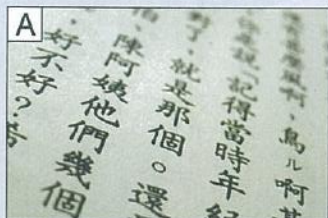 A
風啊，鳥ル啊
是說「記得當時年
對了，就是那個。還
伯、陳阿姨他們幾個
，好不好？